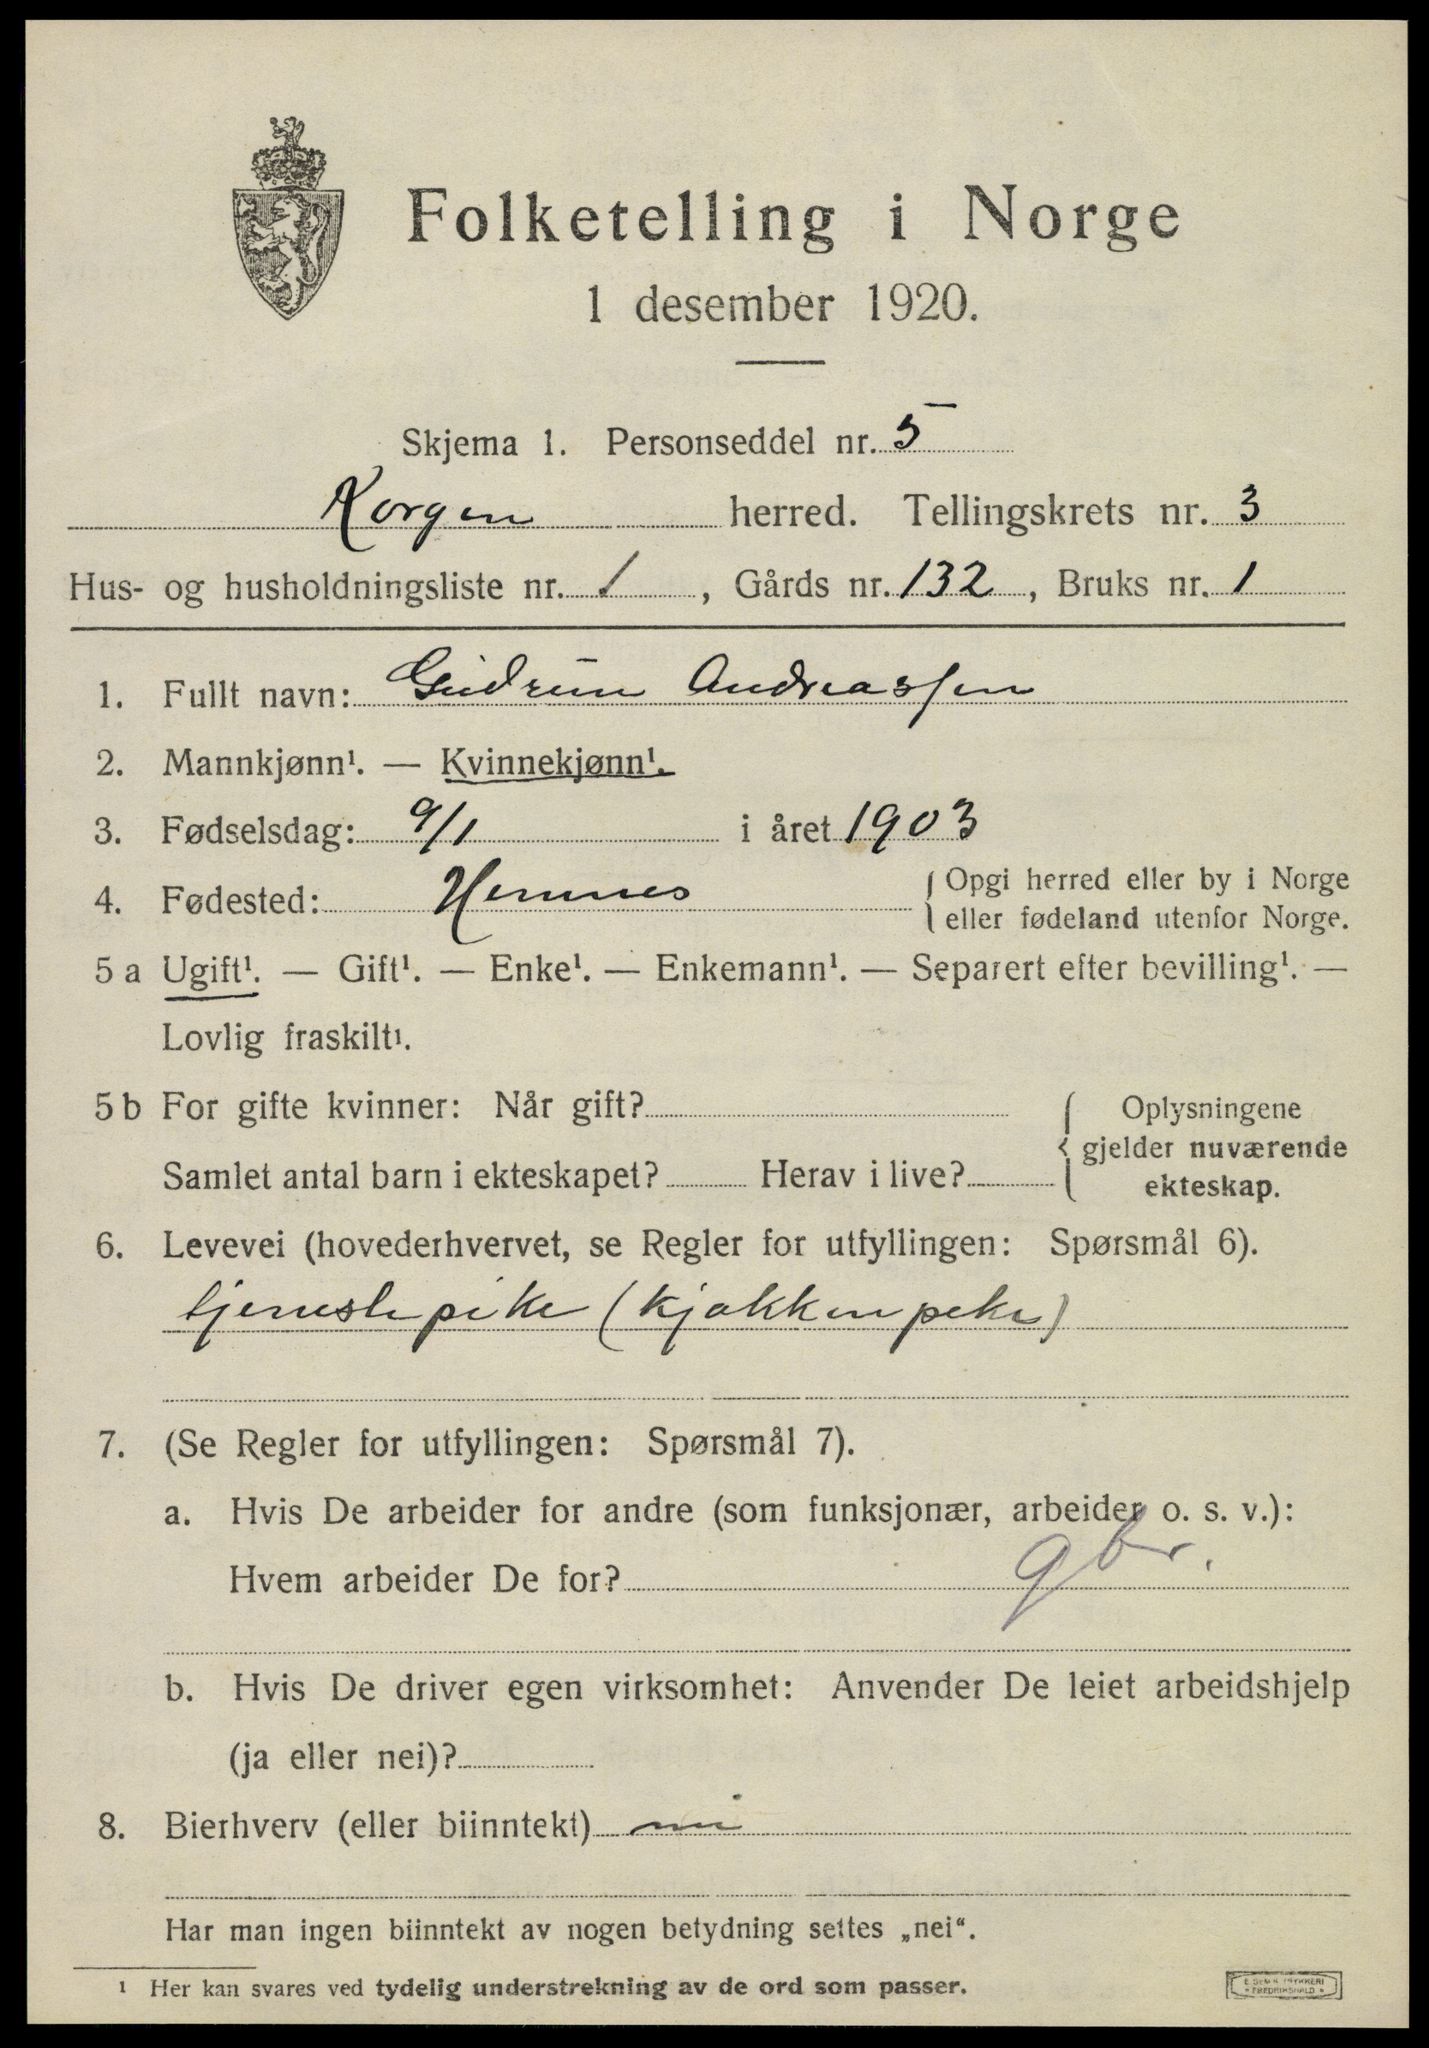 Folketelling i Norge
1 desember 1920.
Skjema 1. Personseddel nr. 5
Korgen herred. Tellingskrets nr. 3
Hus- og husholdningsliste nr. 1, Gårds nr. 132, Bruks nr. 1
1. Fullt navn: Gudrun Andreassen
2. Mannkjønn¹. — Kvinnekjønn¹.
3. Fødselsdag: 9/1 i året 1903
4. Fødested: Hemnes { Opgi herred eller by i Norge
eller fødeland utenfor Norge.
5 a Ugift¹. — Gift¹. — Enke¹. — Enkemann¹. — Separert efter bevilling¹. —
Lovlig fraskilt¹.
5 b For gifte kvinner: Når gift? { Oplysningene
gjelder nuværende
Samlet antal barn i ekteskapet? Herav i live? ekteskap.
6. Levevei (hovederhvervet, se Regler for utfyllingen: Spørsmål 6).
tjenestepike (kjøkkenpike)
7. (Se Regler for utfyllingen: Spørsmål 7).
a. Hvis De arbeider for andre (som funksjonær, arbeider o. s. v.):
Hvem arbeider De for? gbr.
b. Hvis De driver egen virksomhet: Anvender De leiet arbeidshjelp
(ja eller nei)?
8. Bierhverv (eller biinntekt) nei
Har man ingen biinntekt av nogen betydning settes „nei“.
¹ Her kan svares ved tydelig understrekning av de ord som passer.
FREDRIKSHALD